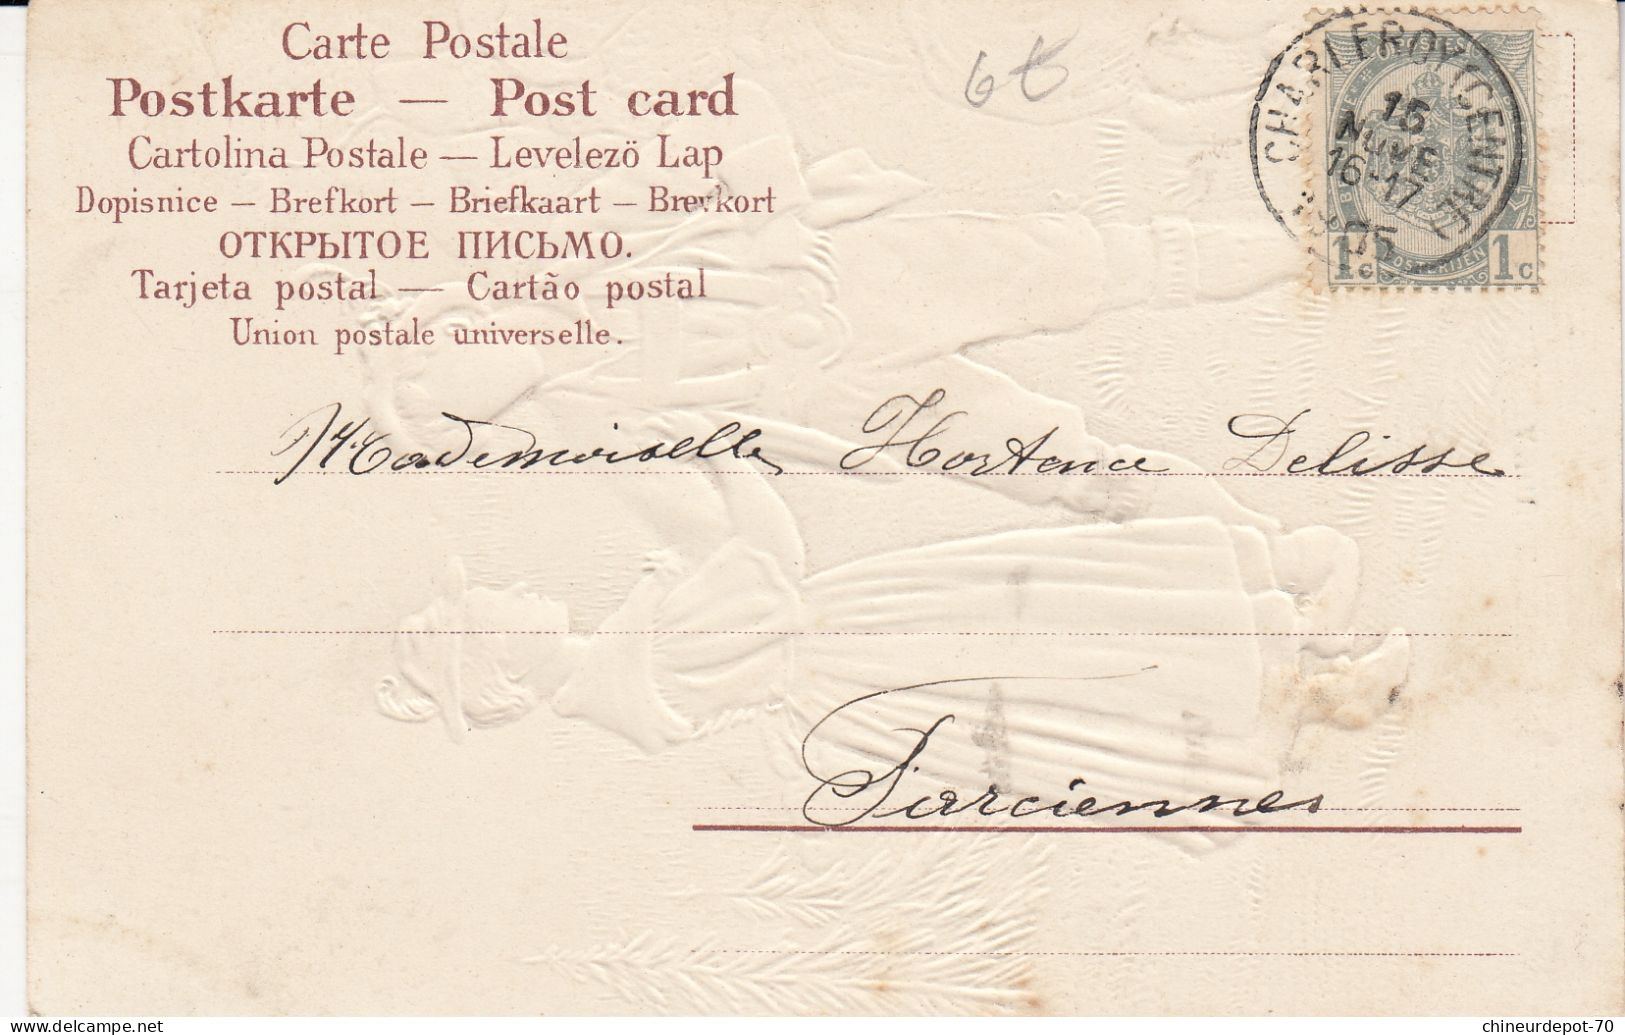 Carte Postale
Postkarte — Post card
Cartolina Postale — Levelező Lap
Dopisnice — Brefkort — Briefkaart — Brevkort
ОТКРЫТОЕ ПИСЬМО.
Tarjeta postal — Cartão postal
Union postale universelle.
6€
CHARLEROY (CENTRE)
15
NOVE
16-17
1905
1c 1c
Mademoiselle Hortence Delisse
Farciennes
chineurdepot-70